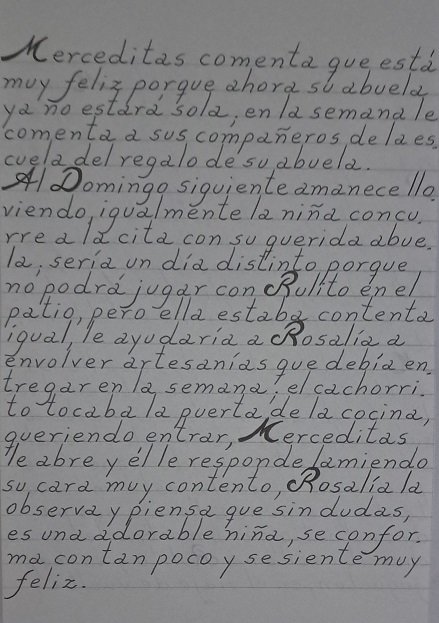 Merceditas comenta que está
muy feliz porque ahora su abuela
ya no estará sola, en la semana le
comenta a sus compañeros de la es.
cuela del regalo de su abuela.
Al Domingo siguiente amanece llo.
viendo, igualmente la niña concu.
rre a la cita con su querida abue.
la, sería un día distinto porque
no podrá jugar con Rulito en el
patio, pero ella estaba contenta
igual, le ayudaría a Rosalía a
envolver artesanías que debía en.
tregar en la semana; el cachorri.
to tocaba la puerta de la cocina,
queriendo entrar, Merceditas
le abre y él le responde lamiendo
su cara muy contento, Rosalía la
observa y piensa que sin dudas,
es una adorable niña, se confor.
ma con tan poco y se siente muy
feliz.